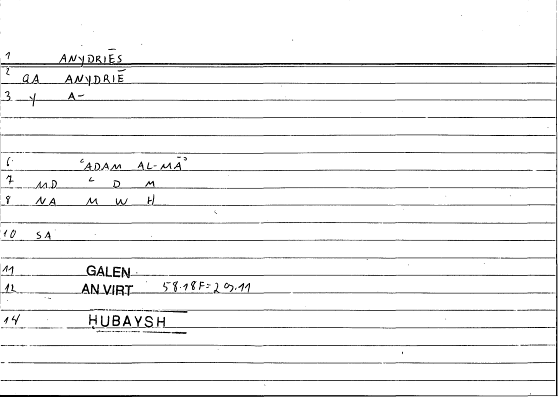 1 ANYDRIĒS
2 QA ANYDRIĒ
3 Y A-
6 ʿADAM AL-MĀʾ
7 MD ʿ D M
8 NA M W H
10 SA
11 GALEN
12 AN VIRT 58.18F = 29.11
14 HUBAYSH